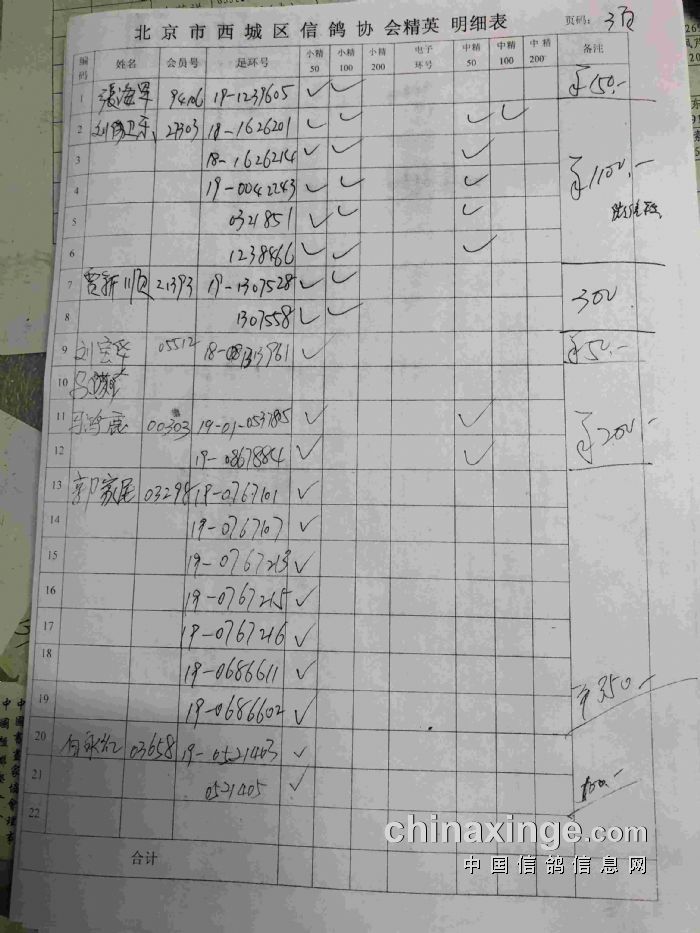 北京市西城区信鸽协会精英 明细表 页码: 3页
编码 姓名 会员号 足环号 小精50 小精100 小精200 电子环号 中精50 中精100 中精200 备注
1 張海军 94106 19-1239605 ✓ ✓ ¥150.-
2 27303 18-1626201 ✓ ✓ ✓ ✓
3 18-1626214 ✓ ✓ ✓
4 19-0042243 ✓ ✓ ✓ ¥1100.-
5 0321851 ✓ ✓ ✓
6 1238866 ✓ ✓ ✓
7 贾新顺 21393 19-1307528 ✓ ✓
8 1307558 ✓ ✓ 300
9 刘宝华 05512 ✓ ¥50.-
10
11 00303 19-01-0537805 ✓ ✓
12 19-0867884 ✓ ✓ ¥200.-
13 郭家居 03298 19-0767101 ✓
14 19-0767107 ✓
15 19-0767213 ✓
16 19-0767215 ✓
17 19-0767216 ✓
18 19-0686611 ✓
19 19-0686602 ✓ ¥350.-
20 白永红 03658 19-0521403 ✓
21 0521405 ✓ 100.-
22
合计
chinaxinge.com
中国信鸽信息网